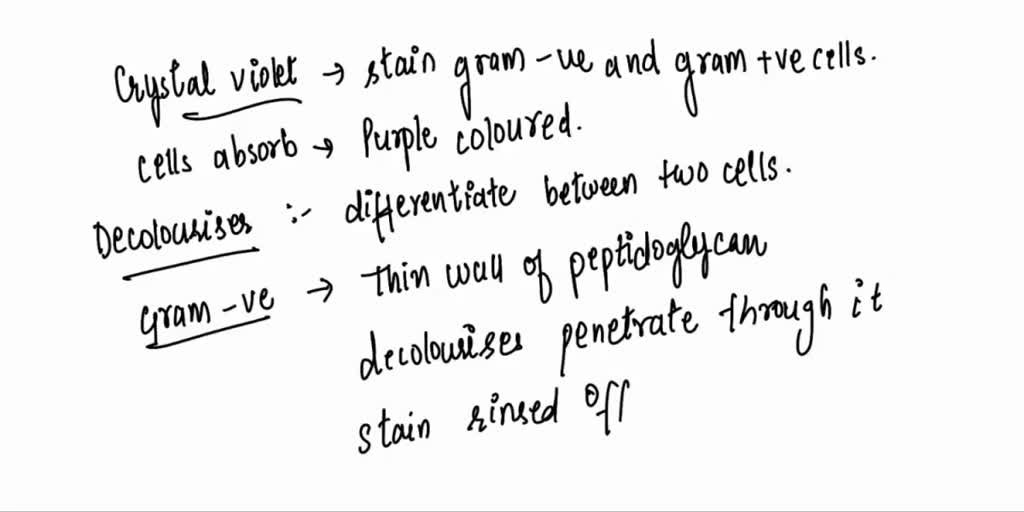 Crystal violet → stain gram -ve and gram +ve cells.
cells absorb → Purple coloured.
Decolourises :- differentiate between two cells.
gram -ve → thin wall of peptidoglycan
decolourises penetrate through it
stain rinsed off